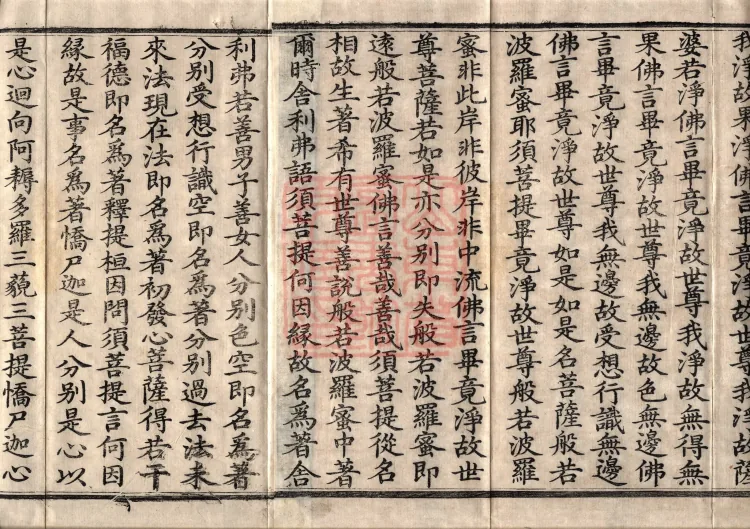 我淨故果淨佛言畢竟淨故世尊我淨故薩
婆若淨佛言畢竟淨故世尊我淨故無得無
果佛言畢竟淨故世尊我無邊故色無邊佛
言畢竟淨故世尊我無邊故受想行識無邊
佛言畢竟淨故世尊如是如是名菩薩般若
波羅蜜耶須菩提畢竟淨故世尊般若波羅
蜜非此岸非彼岸非中流佛言畢竟淨故世
尊菩薩若如是亦分別即失般若波羅蜜即
遠般若波羅蜜佛言善哉善哉須菩提從名
相故生著希有世尊善說般若波羅蜜中著
爾時舍利弗語須菩提何因緣故名為著舍
利弗若善男子善女人分別色空即名為著
分別受想行識空即名為著分別過去法未
來法現在法即名為著初發心菩薩得若干
福德即名為著釋提桓因問須菩提言何因
緣故是事名為著憍尸迦是人分別是心以
是心迴向阿耨多羅三藐三菩提憍尸迦心